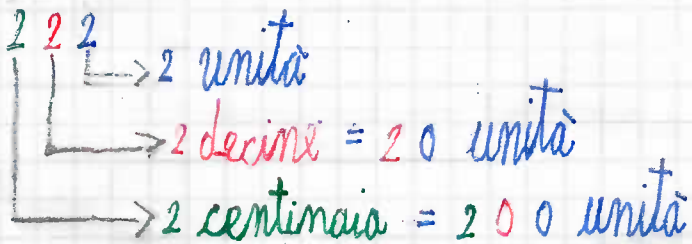 2 2 2
2 unità
2 decine = 2 0 unità
2 centinaia = 2 0 0 unità